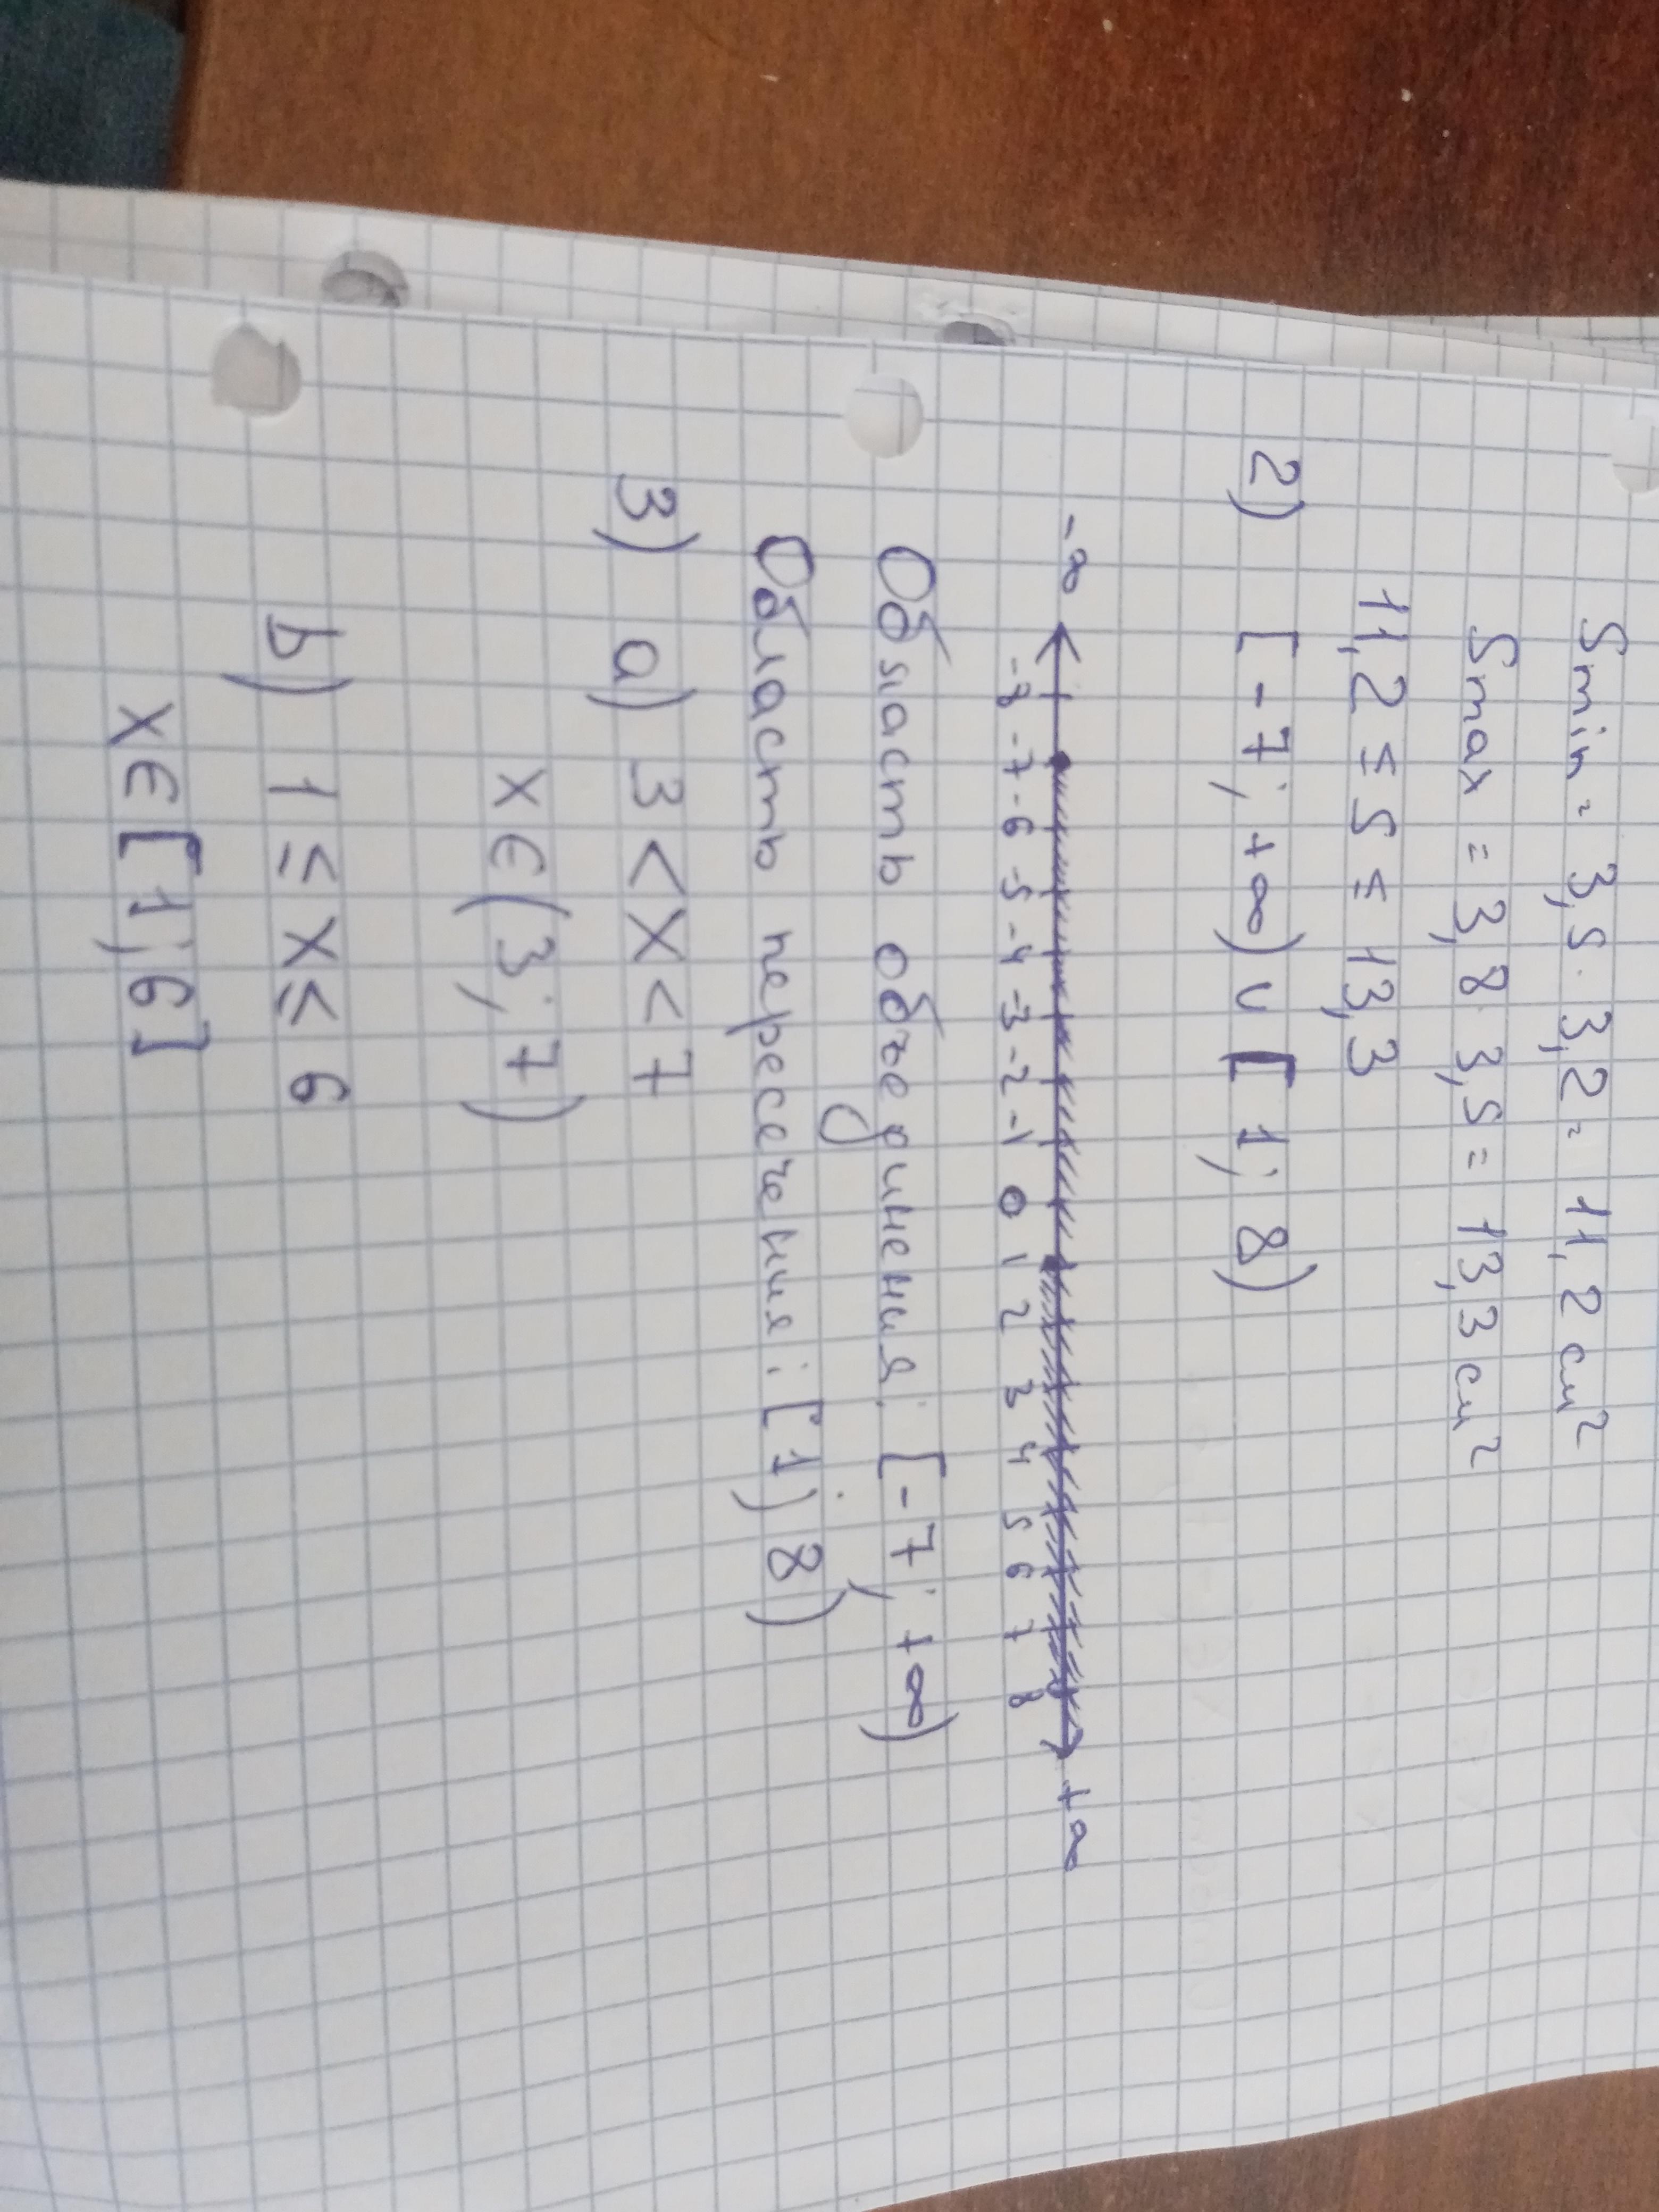 Smin = 3,5 · 3,2 = 11,2 см²
Smax = 3,8 · 3,5 = 13,3 см²
11,2 ≤ S ≤ 13,3
2) [-7; +∞) ∪ [1; 8)
-∞ +∞
-8 -7 -6 -5 -4 -3 -2 -1 0 1 2 3 4 5 6 7 8
Область объединения: [-7; +∞)
Область пересечения: [1; 8)
3) a) 3 < x < 7
x ∈ (3; 7)
b) 1 ≤ x ≤ 6
x ∈ [1; 6]